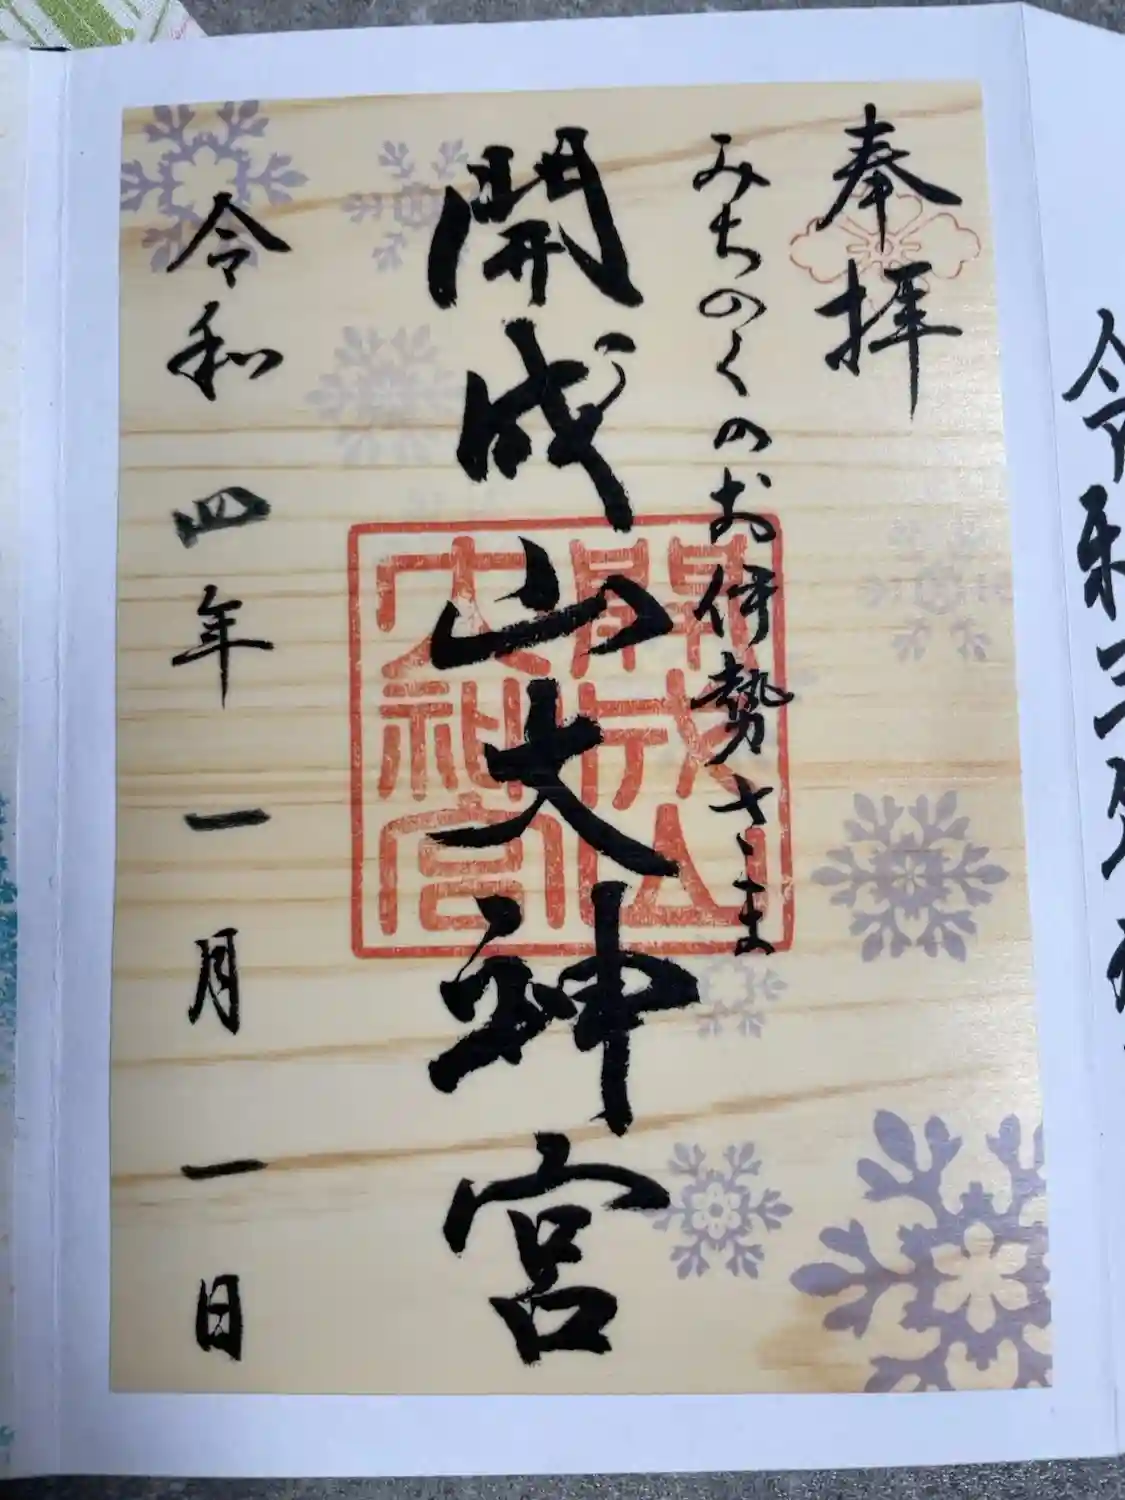 奉拝
みちのくのお伊勢さま
開成山大神宮
開成山
大神宮
令和四年一月一日